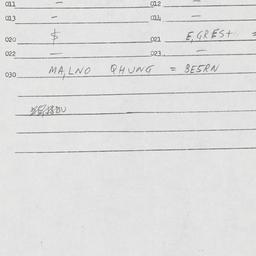 011 - 012 -
013 - 014 -
020 $ 021 E,GREST =
022 - 023 -
030 MA,LNO QHUNG = BE5RN